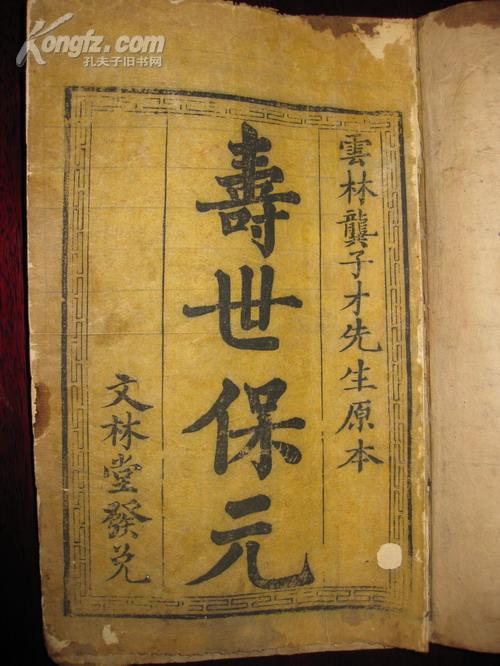 Kongfz.com
孔夫子旧书网
雲林龔子才先生原本
壽世保元
文林堂發兑